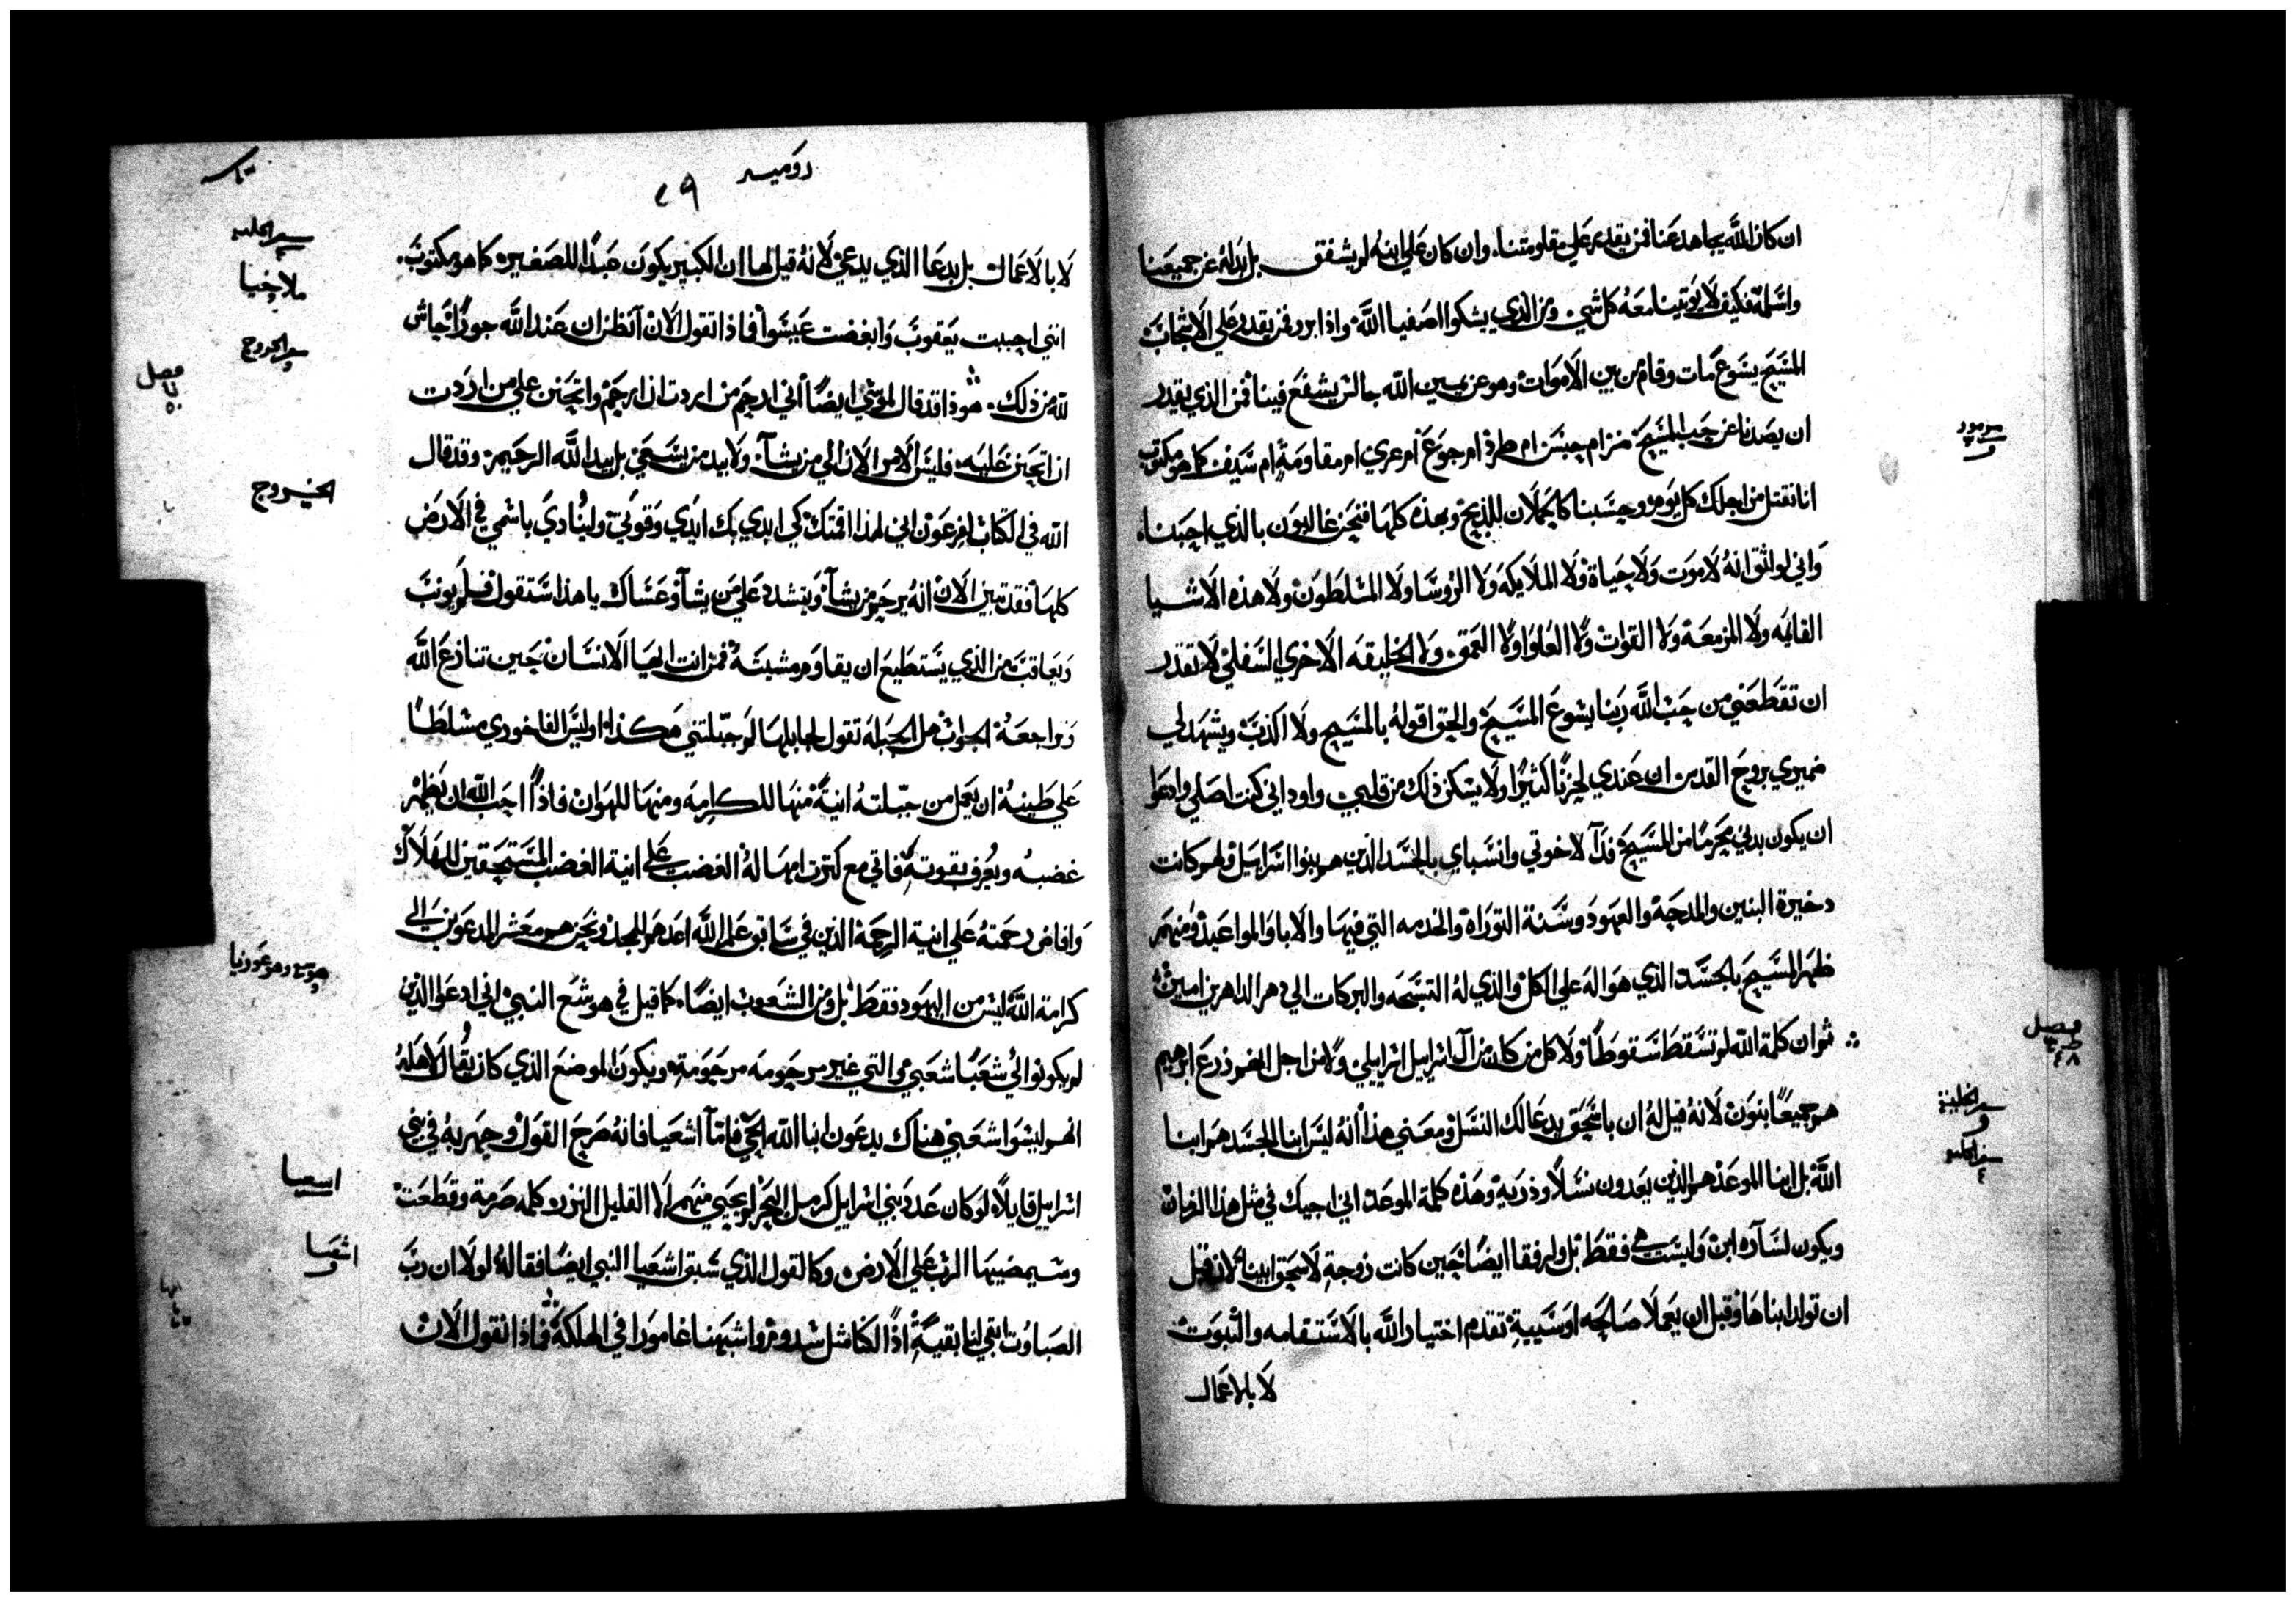 ان كان الله يجاهد عنا فمن يقدر على مقاومتنا. وان كان على ابنه لم يشفق بل بذله عن جميعنا
واسلمه فكيف لا يوتينا معه كل شي ومن الذي يشكوا اصفيا الله واذا برر فمن يقدر على الاشجاب
المسيح يسوع مات وقام من بين الاموات وهو عن يمين الله جالس يشفع فينا فمن الذي يقدر
ان يصدنا عن حب المسيح ضر ام حبس ام طرد ام جوع ام عري ام مقاومة ام سيف كما هو مكتوب
مزمور
اننا نقتل من اجلك كل يوم وحسبنا كالحملان للذبح وبهذه كلها فنحن غالبون بالذي احبنا.
واني لواثق انه لا موت ولا حياة ولا الملايكه ولا الروسا ولا المسلطون ولا هذه الاشيا
القايمه ولا المزمعة ولا القوات ولا العلو اولا العمق ولا الخليقه الاخري السفلي لا تقدر
ان تقطعني من حب الله ربنا يسوع المسيح والحق اقوله بالمسيح ولا اكذب ويشهد لي
ضميري بروح القدس ان عندي لحزنا كثيرا ولا يسكن ذلك من قلبي واود اني كنت اصلي وادعوا
ان يكون بدني محرما من المسيح فدآ لاخوتي وانسباي بالجسد الذين هم بنوا اسراييل ولهم كانت
دخيرة البنين والمدحة والعهود وسنة التوراة والخدمه التي فيها والابا والمواعيد ومنهم
ظهر المسيح بالجسد الذي هو اله علي الكل والذي له التسبحه والبركات الي دهر الداهرين امين
ثم ان كلمة الله لم تسقط سقوطا ولا كل من كان من آل اسراييل اسراييلي ولا من اجل انهم زرع ابرهيم
فصل
٤٨
هم جميعا بنون لانه قيل له ان باسحق يدعا لك النسل ومعني هذا انه ليس ابنا الجسد هم ابنا
سفر الخليقة
الله بل ابنا الموعد هم الذين يعدون نسلا وذرية وهذه كلمة الموعد اني اجيك في مثل هذا الزمان
ويكون لساره ابن وليست هي فقط بل ولرفقا ايضا حين كانت زوجة لاسحق ابينا لان قبل
ان تولد ابناها وقبل ان يعملا صالحه او سيية تقدم اختيار الله بالاستقامه والثبوت
لا بالاعمال
روميه
٢٩
لا بالاعمال بل بدعا الذي يدعي لانه قيل لها ان الكبير يكون عبدا للصغير كما هو مكتوب.
ملاخيا
انني احببت يعقوب وابغضت عيسوا فماذا نقول الان آنظن ان عند الله جورا حاش
سفر الخروج
فصل
لله من ذلك. هوذا قد قال لموسي ايضا اني ارحم من اردت ان ارحم واتحنن علي من اردت
ان اتحنن عليه. فليس الامر الان الي من يشآ. ولا بيد من يسعي بل بيد الله الرحيم. وقد قال
الخروج
الله في الكتاب لفرعون اني لهذا اقمتك كي ابدي بك ايدي وقوتي ولينادي باسمي في الارض
كلها فقد تبين الان انه يرحم من يشآ ويتشدد علي من يشآ وعساك يا هذا ستقول فلم يونب
ويعاقب من الذي يستطيع ان يقاوم مشيئته فمن انت ايها الانسان حين تنازع الله
وتراجعه الجواب هل الجبلة تقول لجابلها لم جبلتني هكذا اوليس الفاخوري مسلطا
علي طينه ان يعمل من جبلته انية منها للكرامه ومنها للهوان فاذا احب الله ان يظهر
غضبه ويعرف بقوته فاتي مع كثرت امهاله الغضب علي انية الغضب المستحقين للهلاك
وافاض رحمته علي انية الرحمة الذين في سابق علم الله اعدهم للمجد ونحن هم معشر المدعوين الي
كرامة الله ليس من اليهود فقط بل ومن الشعوب ايضا. كما قيل في هوشع النبي اني ادعو الذين
لم يكونوا لي شعبا شعبي والتي غير مرحومه مرحومه. ويكون الموضع الذي كان يقال لاهله
انهم ليسوا شعبي هناك يدعون ابنا الله الحي فامآ اشعيا فانه صرح القول وجهر به في بني
اسراييل قايلا. لو كان عدد بني اسراييل كرمل البحر لم يحيي منهم الا القليل النزر. كلمه صرمة وقطعت
اسعيا
وسيمضيها الرب علي الارض. وكالقول الذي سبق اشعيا النبي ايضا فقاله لولا ان رب
اشعيا
الصباوت ابقي لنا بقية اذا لكنا مثل سدوم واشبهنا غامورا في الهلكة فماذا نقول الان